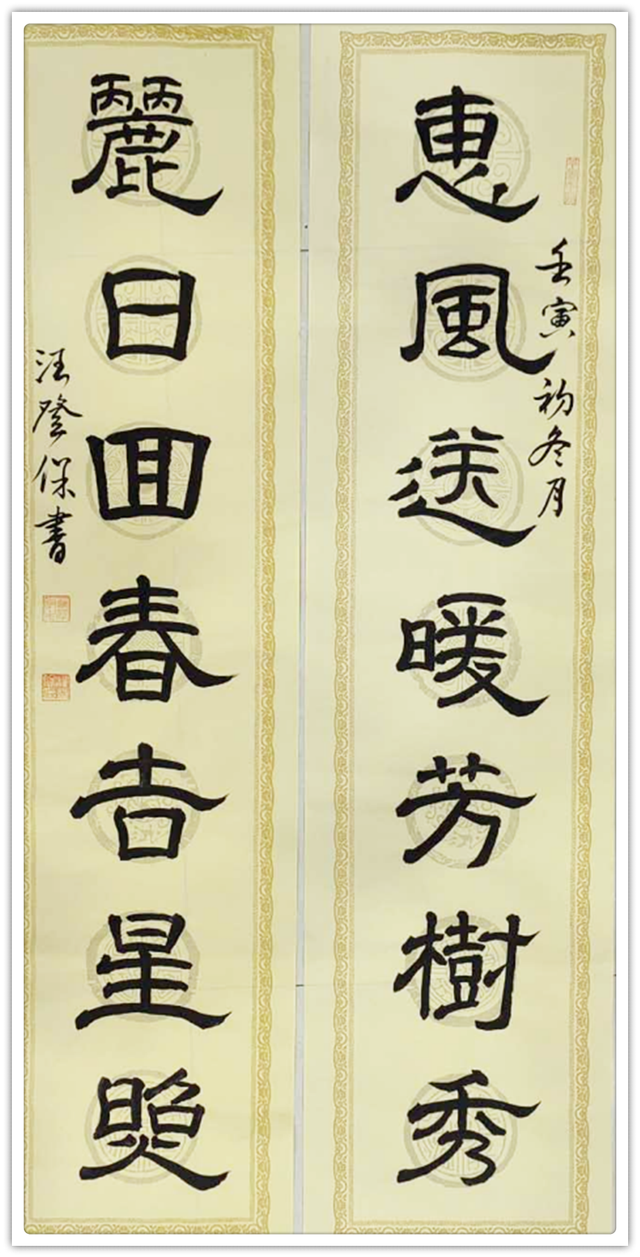 惠風送暖芳樹秀
壬寅初冬月
麗日回春吉星照
汪登保書